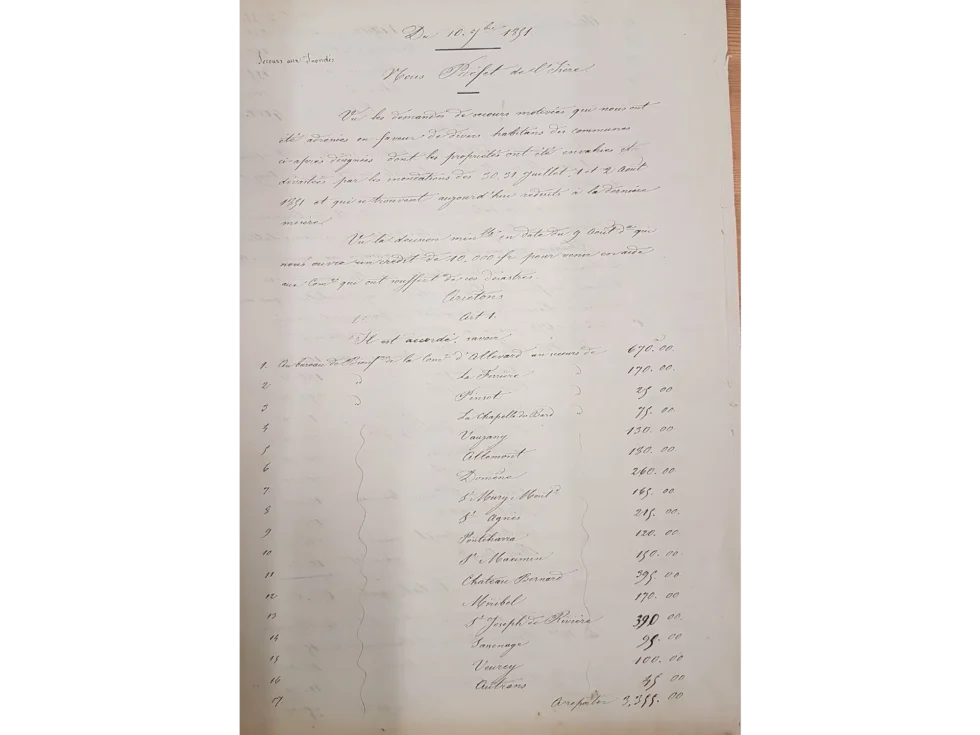 Du 10. 7bre 1851
Secours aux Inondés
Nous Préfet de l'Isère
Vu les demandes de secours motivées qui nous ont
été adressées en faveur de divers habitans des communes
ci-après désignées dont les propriétés ont été envahies et
dévastées par les inondations des 30, 31 Juillet, 1 et 2 Août
1851 et qui se trouvent aujourd'hui réduits à la dernière
misère.
Vu la décision minlle en date du 9 Août dr qui
nous ouvre un crédit de 10,000 fr pour venir en aide
aux Comes qui ont souffert de ces désastres
Arrêtons
Art 1.
Il est accordé, savoir
1. Au bureau de Bienfce de la Come d'Allevard un secours de 670.00
2 " la Ferrière " 170.00
3 " Pinsot " 25 00
4 La Chapelle du Bard 75. 00
5 Vaujany 130. 00
6 Allemont 180. 00
7 Domène 260. 00
8 St Mury-Montd 165. 00
9 Ste Agnès 215. 00
10 Pontcharra 120. 00
11 St Maximin 150. 00
12 Château Bernard 395. 00
13 Miribel 170. 00
14 St Joseph de Rivière 390 00
15 Sassenage 95. 00
16 Veurey 100. 00
17. Autrans 45 00
A reporter 3,355. 00